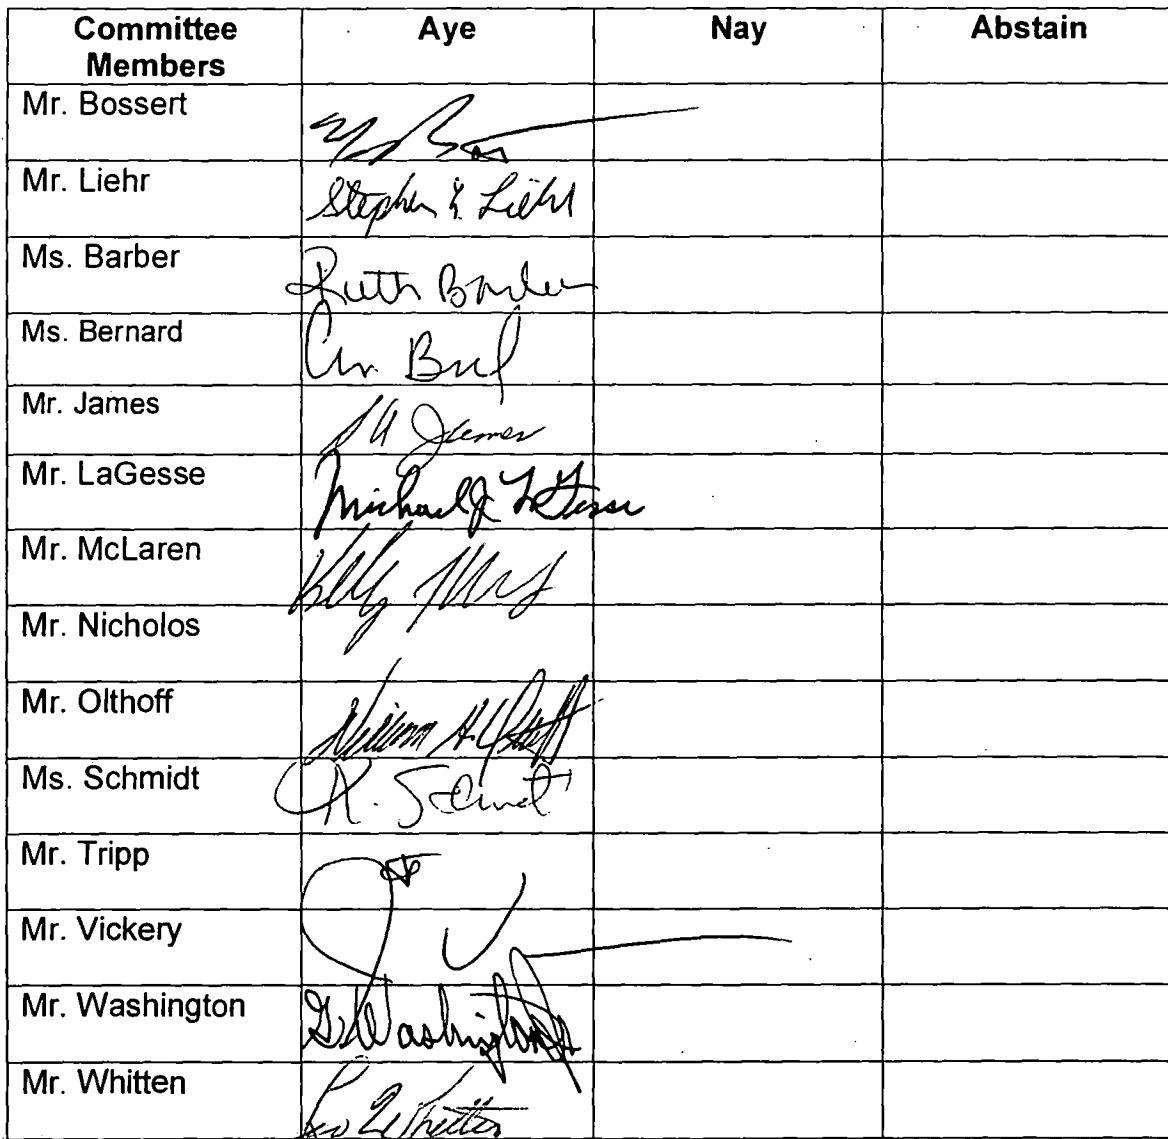 Committee Members Aye Nay Abstain
Mr. Bossert
Mr. Liehr Stephen Liehr
Ms. Barber Ruth Barber
Ms. Bernard
Mr. James James
Mr. LaGesse Michael J LaGesse
Mr. McLaren Kelly
Mr. Nicholos
Mr. Olthoff William H. Olthoff
Ms. Schmidt R. Schmidt
Mr. Tripp
Mr. Vickery
Mr. Washington G. Washington
Mr. Whitten Whitten